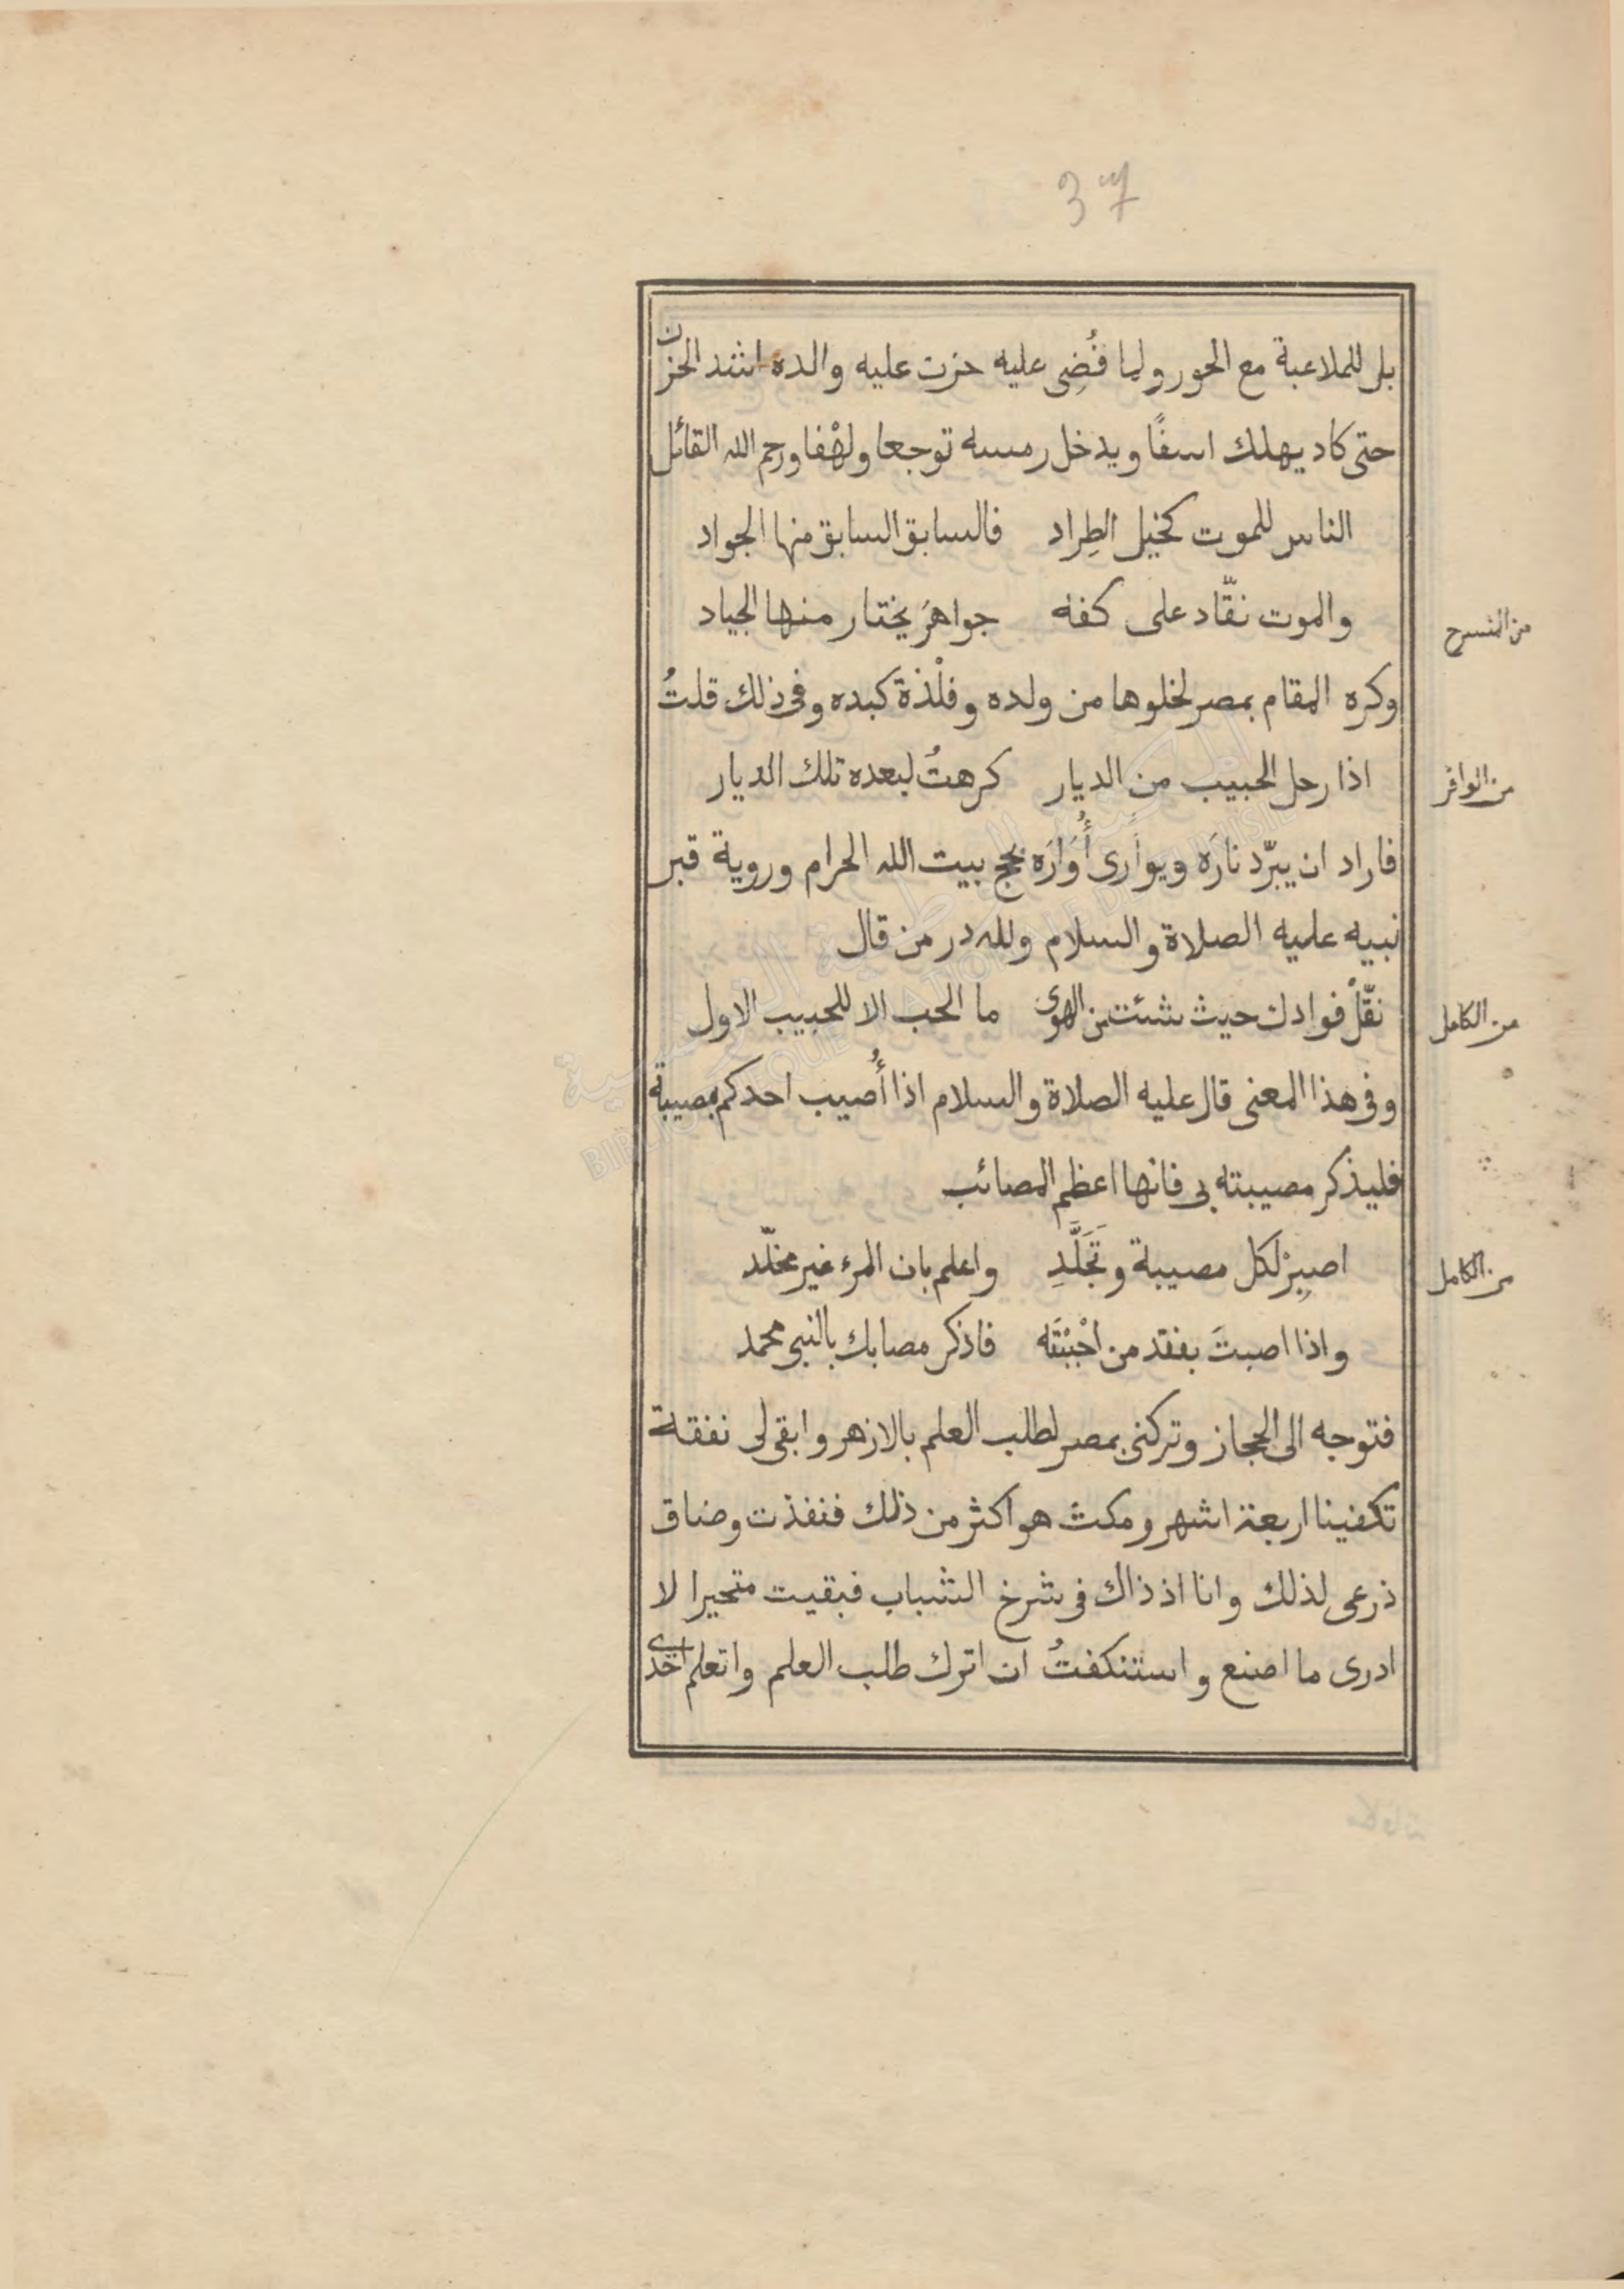 37
بل للملاعبة مع الحور ولما قُضِى عليه حزن عليه والده اشد الحزن
حتى كاد يهلك اسفًا ويدخل رمسه توجعا ولهْفا ورحم الله القائل
الناس للموت كخيل الطِراد فالسابق السابق منها الجواد
والموت نقّاد على كفه جواهرَ يختار منها الجياد
من المنسرح
وكره المقام بمصر لخلوها من ولده وفلْذة كبده وفى ذلك قلتُ
اذا رحل الحبيب من الديار كرهتُ لبعده تلك الديار
من الوافر
فاراد ان يبرّد نارَه ويوارى أُوَارَه بحج بيت الله الحرام وروية قبر
نبيه عليه الصلاة والسلام ولله در من قال
نقّلْ فوادك حيث شئت من الهوى ما الحب الا للحبيب الاول
من الكامل
وفى هذا المعنى قال عليه الصلاة والسلام اذا أُصيب احدكم بمصيبة
فليذكر مصيبته بى فانها اعظم المصائب
اصبِرْ لكل مصيبة وتَجَلَّدِ واعلم بان المرء غير مخلّد
من الكامل
واذا اصبتَ بفقد من احْبَبْتَه فاذكر مصابك بالنبى محمد
فتوجه الى الحجاز وتركنى بمصر لطلب العلم بالازهر وابقى لى نفقة
تكفينا اربعة اشهر ومكث هو اكثر من ذلك فنفذت وضاق
ذرعى لذلك وانا اذ ذاك فى شرخ الشباب فبقيت متحيرا لا
ادرى ما اصنع واستنكفتُ ان اترك طلب العلم واتعلم احدى